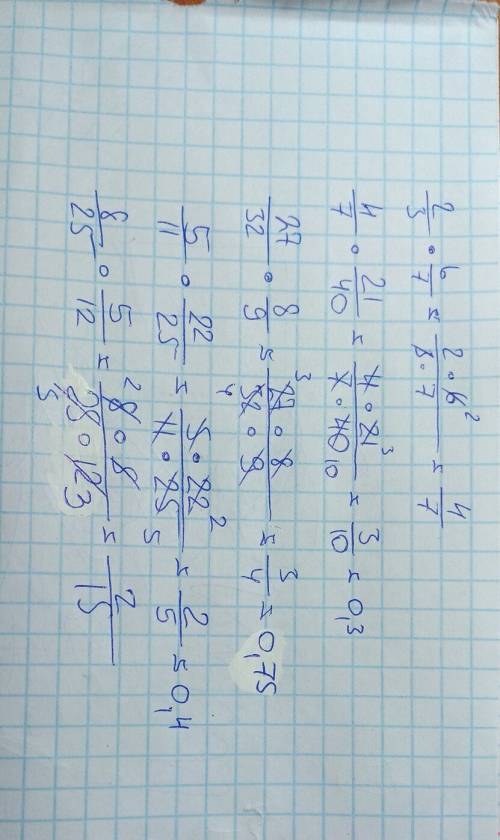 2/3 · 6/7 = 2·6²/3·7 = 4/7
4/7 · 21/40 = 4·21³/7·40₁₀ = 3/10 = 0,3
27/32 · 8/9 = ³27·8/₄32·9 = 3/4 = 0,75
5/11 · 22/25 = 5·22²/11·25₅ = 2/5 = 0,4
8/25 · 5/12 = ²8·5/₅25·12₃ = 2/15